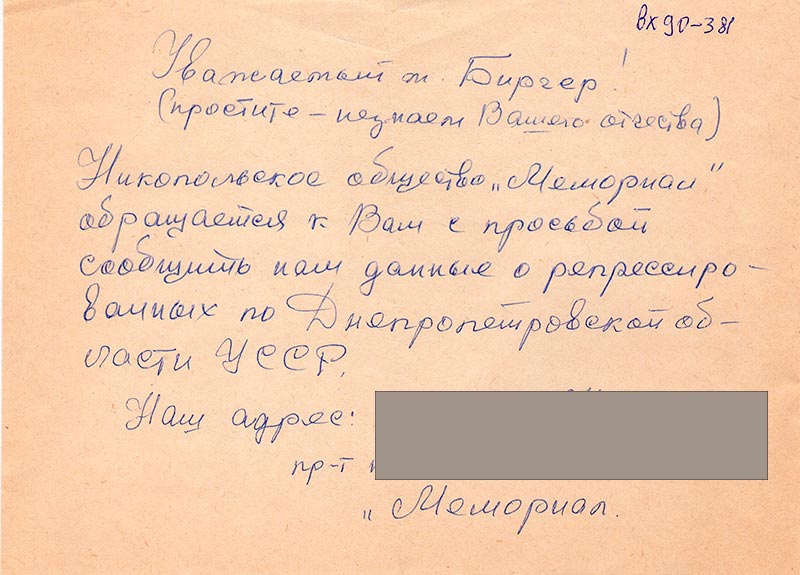 вх 90-381
Уважаемый т. Биргер!
(простите - незнаем Вашего отчества)
Никопольское общество „Мемориал"
обращается к Вам с просьбой
сообщить нам данные о репрессиро-
ванных по Днепропетровской об-
ласти УССР.
Наш адрес:
пр-т
„Мемориал.